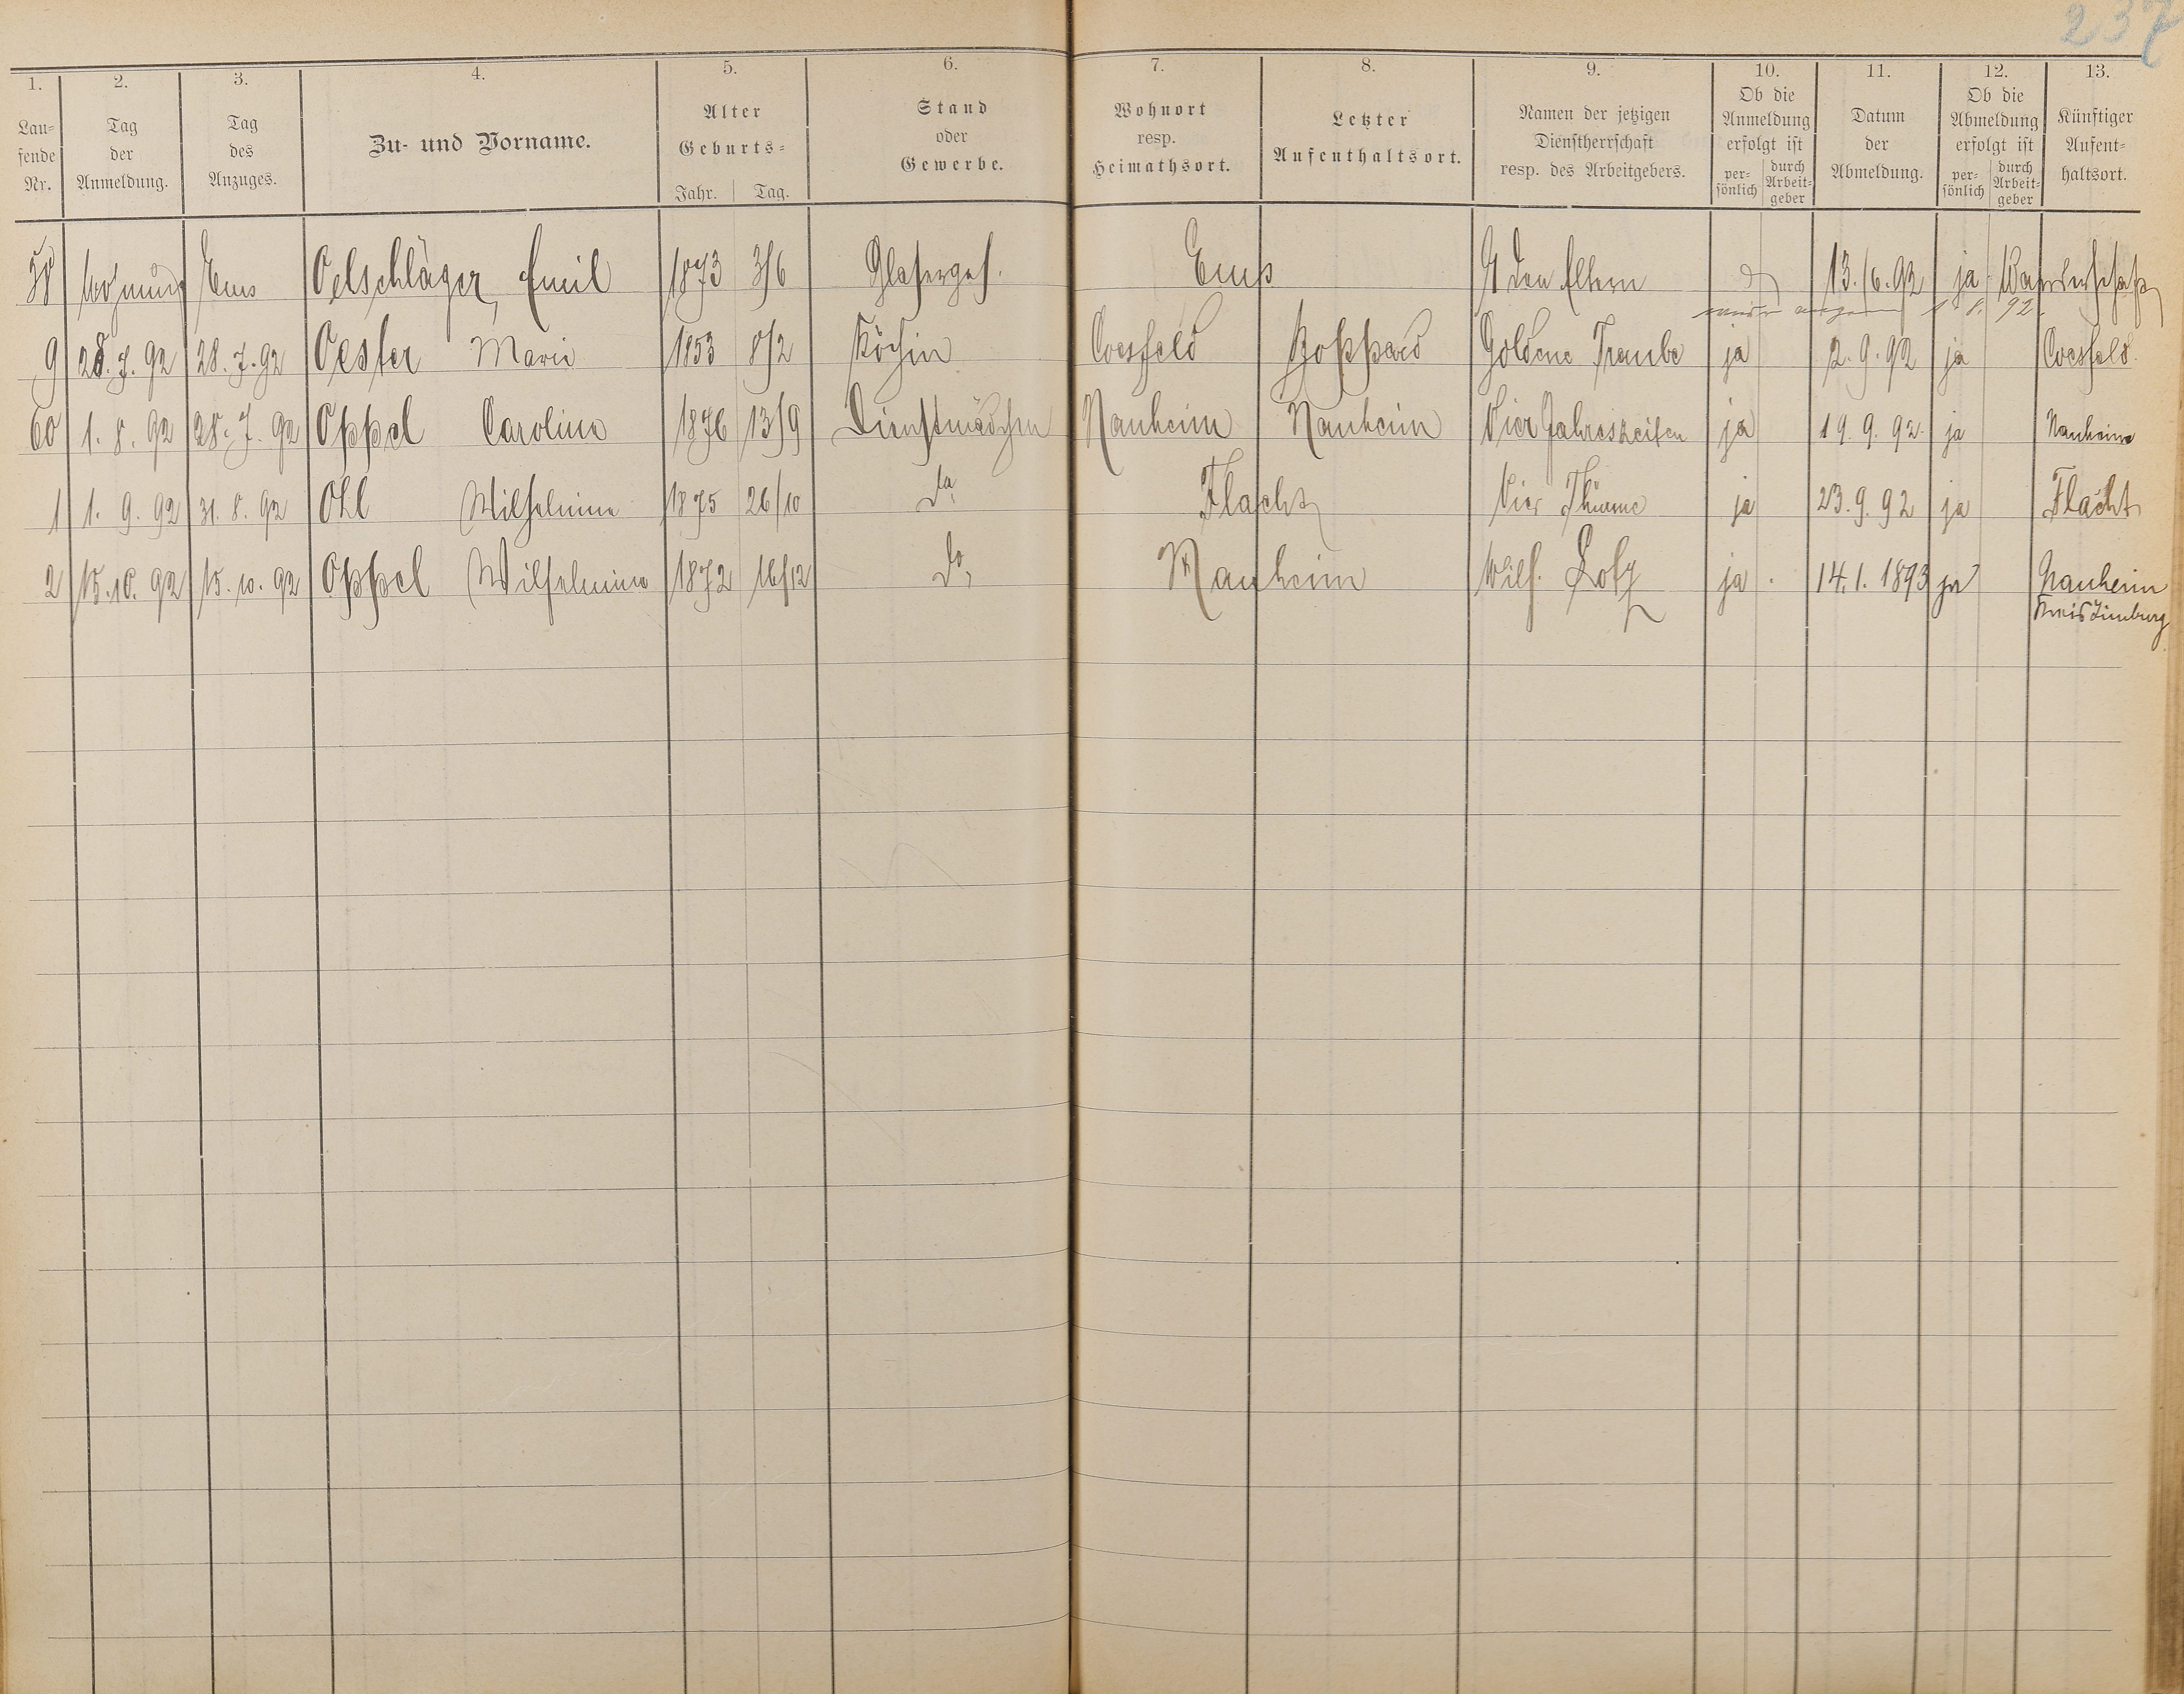 237
1. 2. 3. 4. 5. 6. 7. 8. 9. 10. 11. 12. 13.
Lau=
fende
Nr.
Tag
der
Anmeldung.
Tag
des
Anzuges.
Zu- und Vorname.
Alter
Geburts=
Jahr. Tag.
Stand
oder
Gewerbe.
Wohnort
resp.
Heimathsort.
Letzter
Aufenthaltsort.
Namen der jetzigen
Dienstherrschaft
resp. des Arbeitgebers.
Ob die
Anmeldung
erfolgt ist
per=
sönlich
durch
Arbeit=
geber
Datum
der
Abmeldung.
Ob die
Abmeldung
erfolgt ist
per=
sönlich
durch
Arbeit=
geber
Künftiger
Aufent=
haltsort.
58 Ems Oelschläger, Emil 1873 3/6 Glaserges. Ems den Eltern 13./6.92 ja Wanderschaft
8. 92.
9 28.7.92 28.7.92 Oester Marie 1853 8/2 Köchin Coesfeld Boppard Goldene Traube ja 2.9.92 ja Coesfeld.
60 1.8.92 28.7.92 Oppel Caroline 1876 13/9 Dienstmädchen Nauheim Nauheim Vier Jahreszeiten ja 19.9.92. ja Nauheim
1 1.9.92 31.8.92 Ohl Wilhelmine 1875 26/10 do Flacht Vier Thürme ja 23.9.92 ja Flacht
2 15.10.92 15.10.92 Oppel Wilhelmine 1872 16/12 do, Nauheim Wilh. Lotz ja. 14.1.1893 ja Nauheim
Kreis Limburg